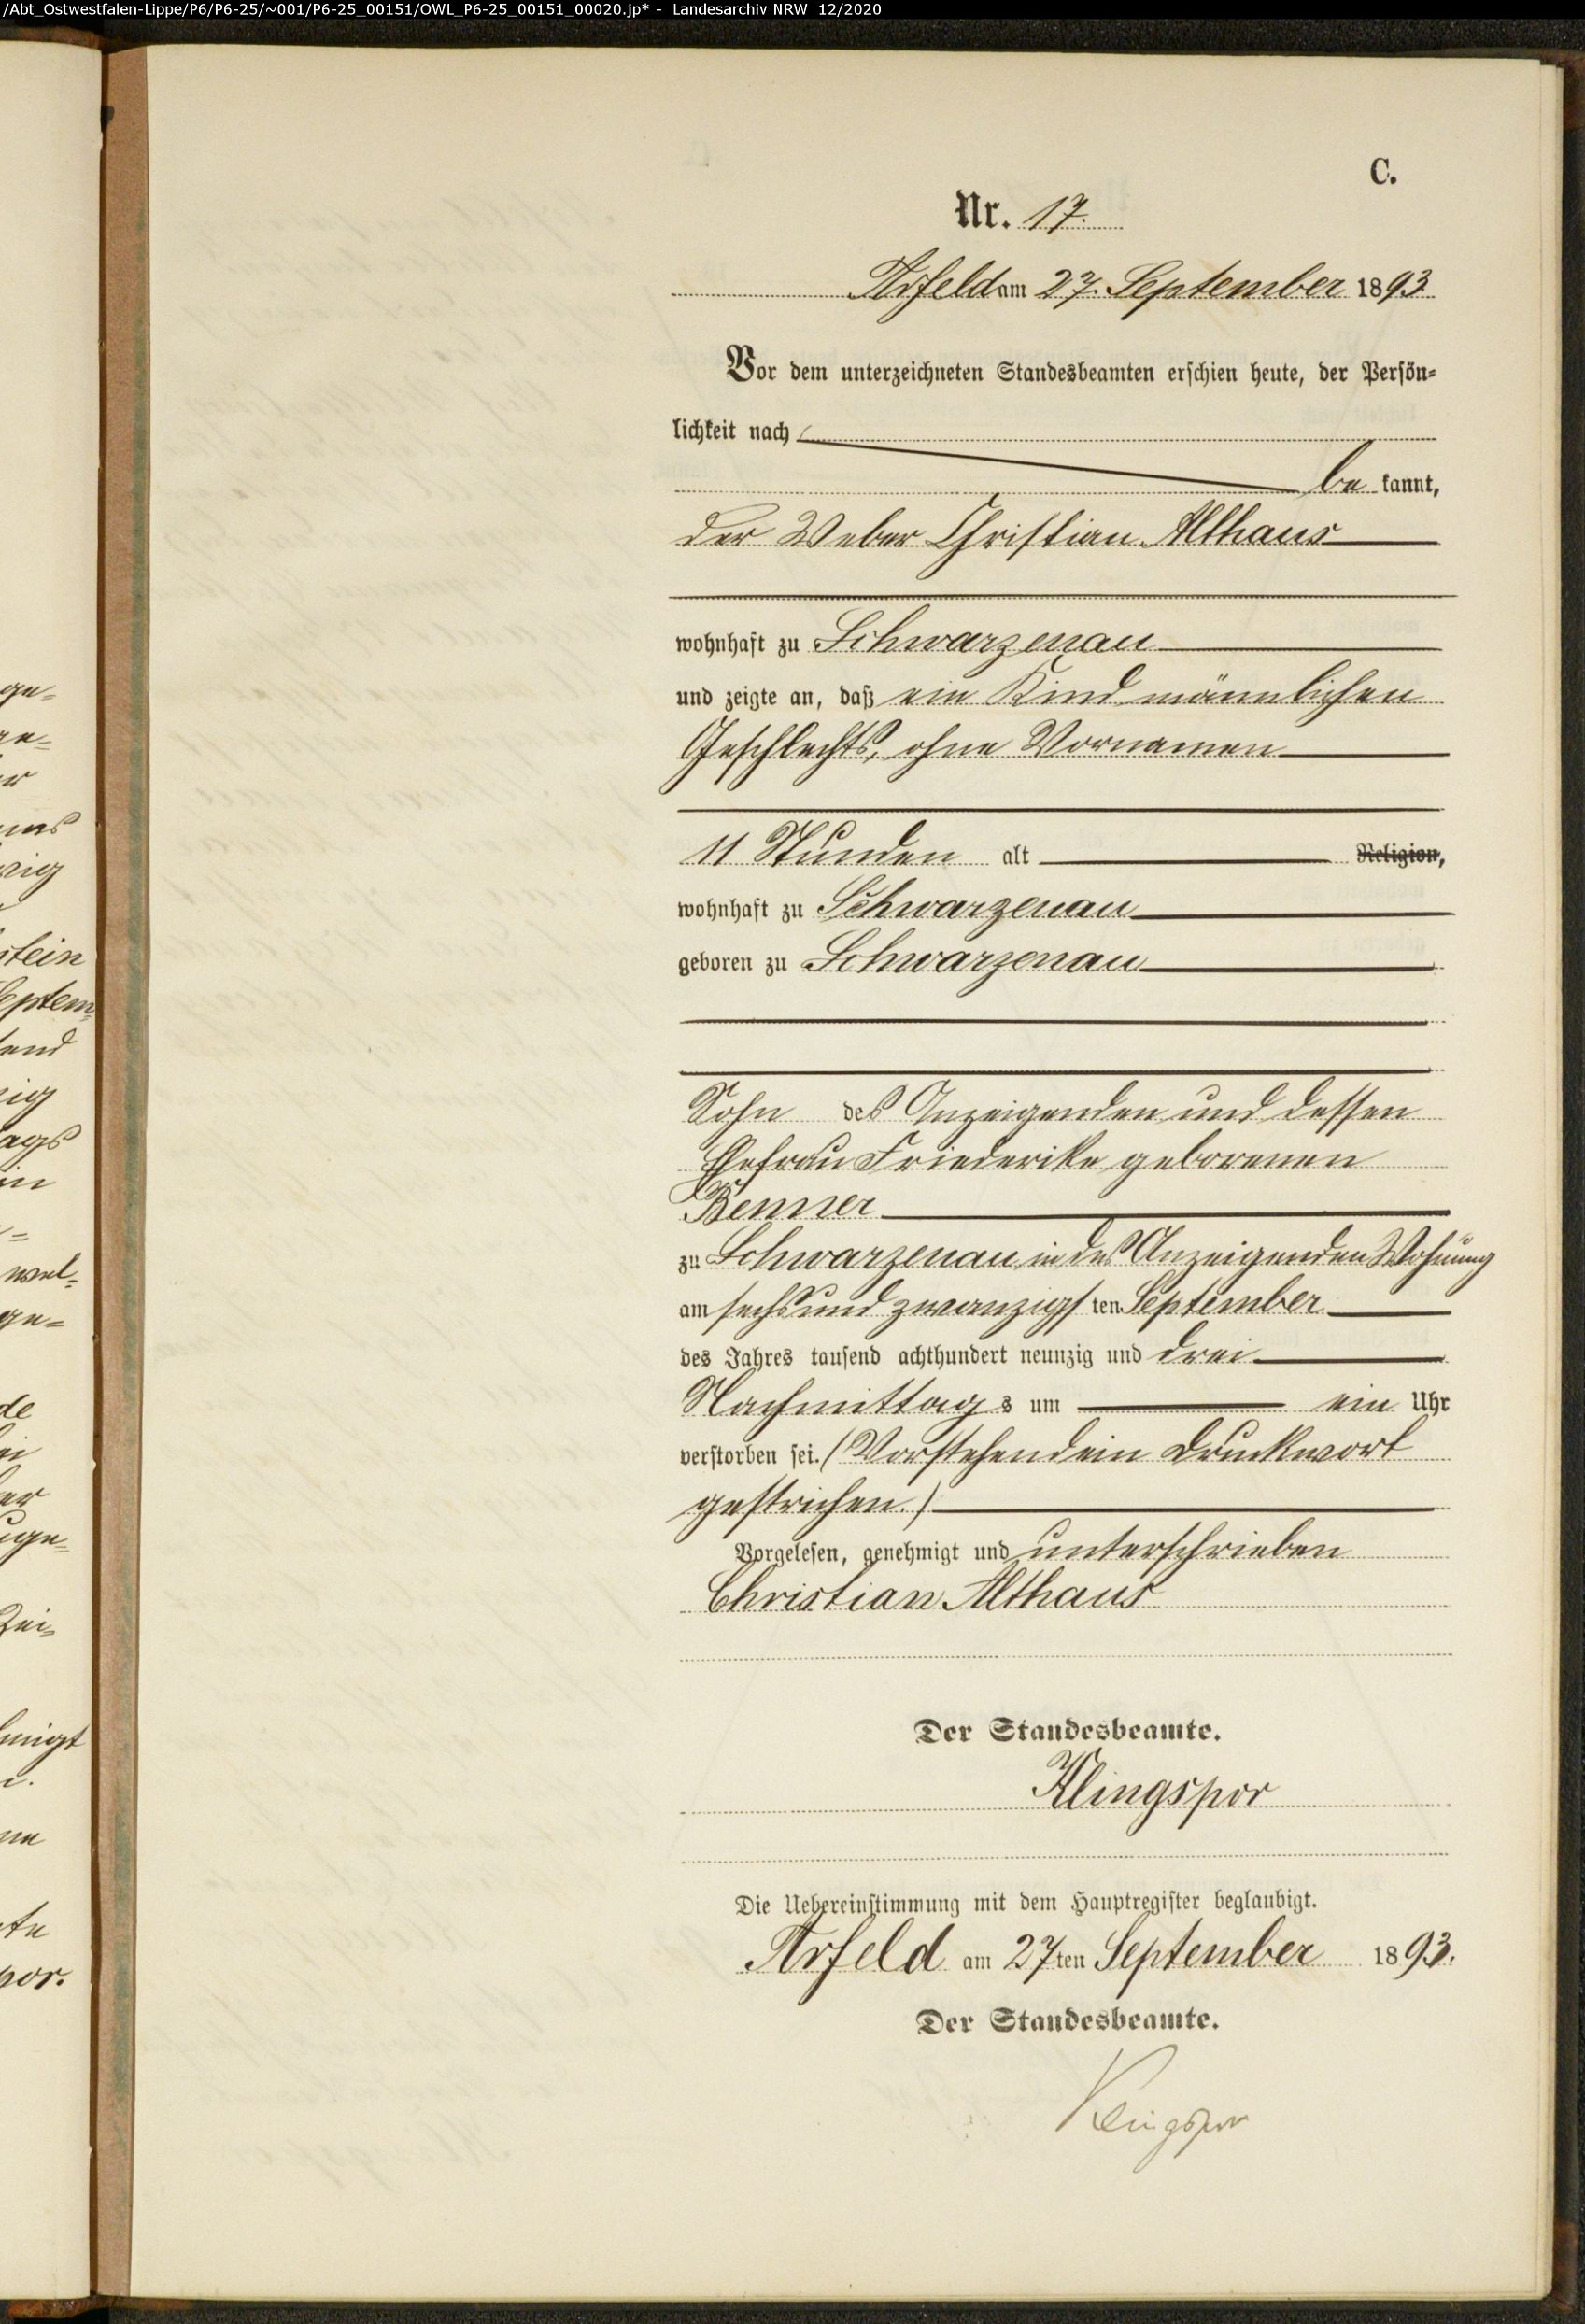 /Abt_Ostwestfalen-Lippe/P6/P6-25/~001/P6-25_00151/OWL_P6-25_00151_00020.jp* - Landesarchiv NRW 12/2020
C.
Nr. 17.
Arfeld am 27. September 1893
Vor dem unterzeichneten Standesbeamten erschien heute, der Persön-
lichkeit nach
be kannt,
der Weber Christian Althaus
wohnhaft zu Schwarzenau
und zeigte an, daß ein Kind männlichen
Geschlechts, ohne Vornamen
11 Stunden alt Religion,
wohnhaft zu Schwarzenau
geboren zu Schwarzenau
Sohn des Anzeigenden und dessen
Ehefrau Friederike geborenen
Benner
zu Schwarzenau in des Anzeigenden Wohnung
am sechsundzwanzigsten September
des Jahres tausend achthundert neunzig und drei
Nachmittags um ein Uhr
verstorben sei. (Vorstehend ein Druckwort
gestrichen.)
Vorgelesen, genehmigt und unterschrieben
Christian Althaus
Der Standesbeamte.
Klingspor
Die Uebereinstimmung mit dem Hauptregister beglaubigt.
Arfeld am 27ten September 1893.
Der Standesbeamte.
Klingspor